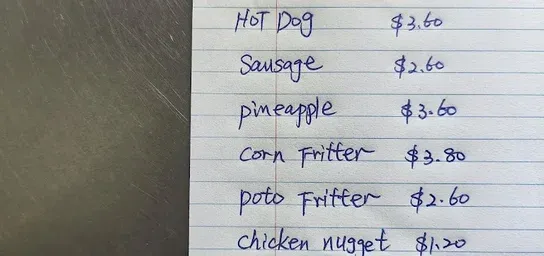 HOT Dog $3.60
Sausage $2.60
pineapple $3.60
corn Fritter $3.80
poto Fritter $2.60
chicken nugget $1.20